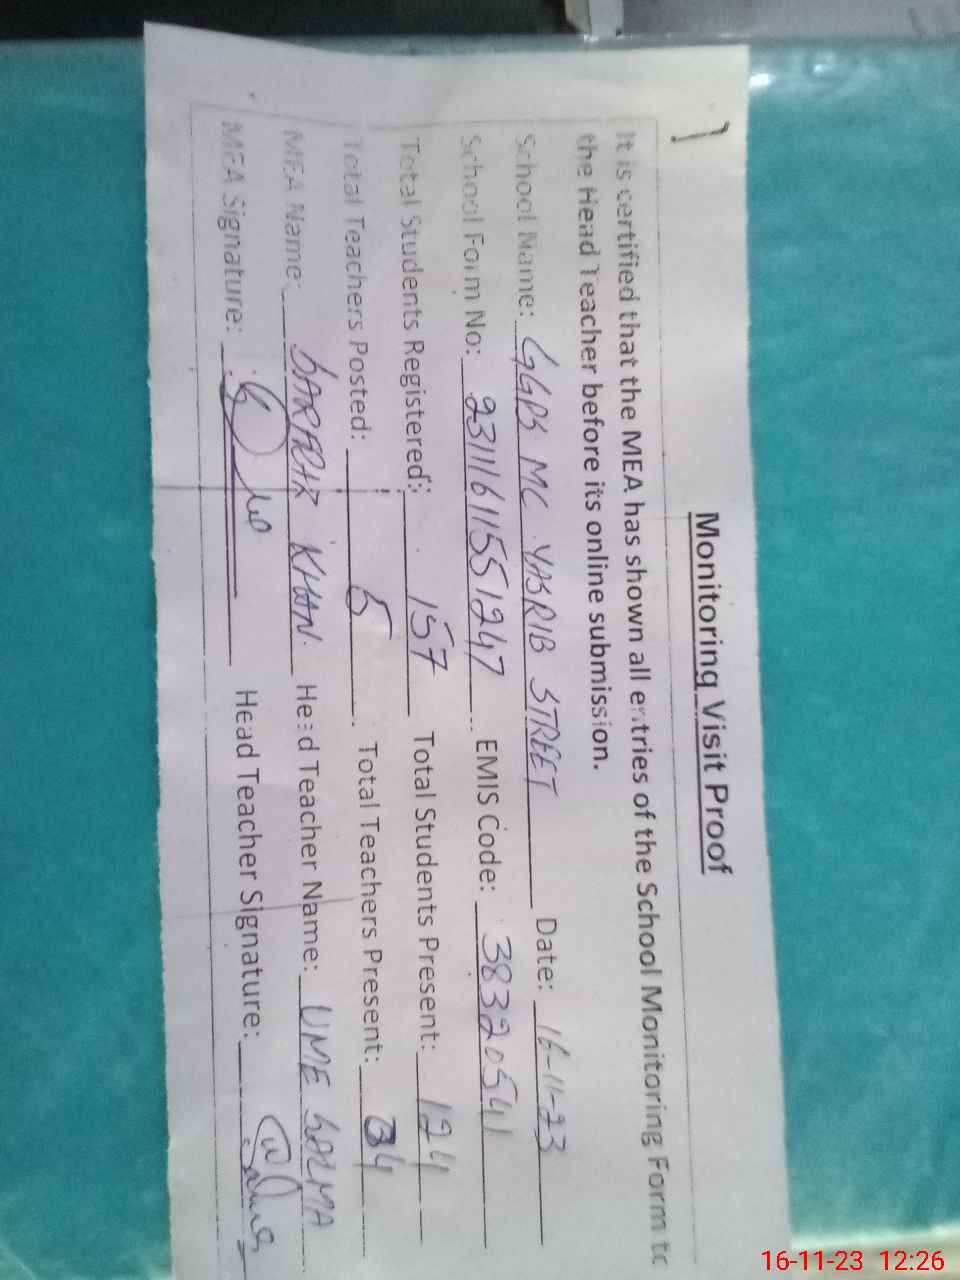 1
Monitoring Visit Proof
It is certified that the MEA has shown all entries of the School Monitoring Form to
the Head Teacher before its online submission.
School Name: GGPS MC YASRIB STREET Date: 16-11-23
School Form No: 23111611551247 EMIS Code: 38320541
Total Students Registered: 157 Total Students Present: 124
Total Teachers Posted: 5 Total Teachers Present: 34
MEA Name: SARFRAZ KHAN. Head Teacher Name: UME SALMA
MEA Signature: Head Teacher Signature:
16-11-23 12:26